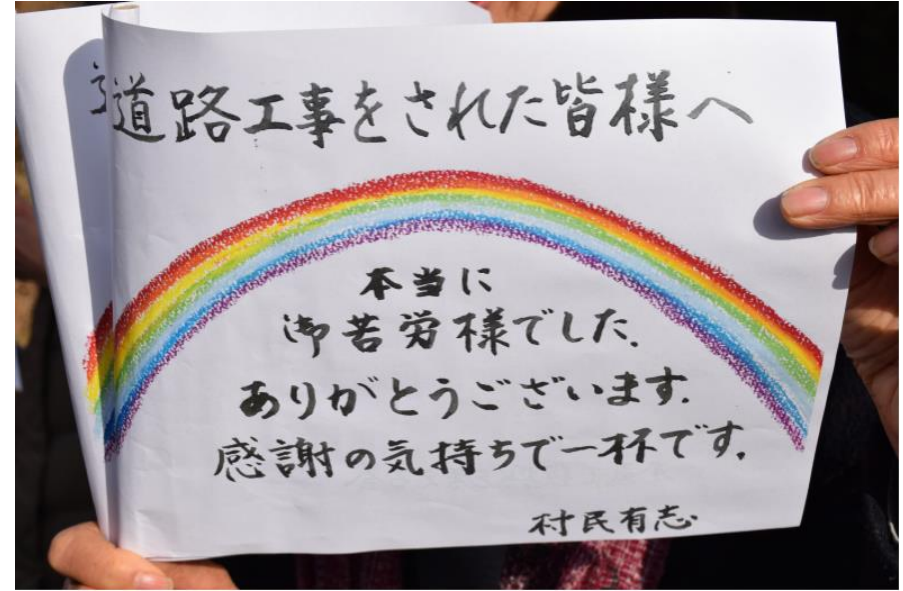 道路工事をされた皆様へ
本当に
御苦労様でした.
ありがとうございます.
感謝の気持ちで一杯です.
村民有志